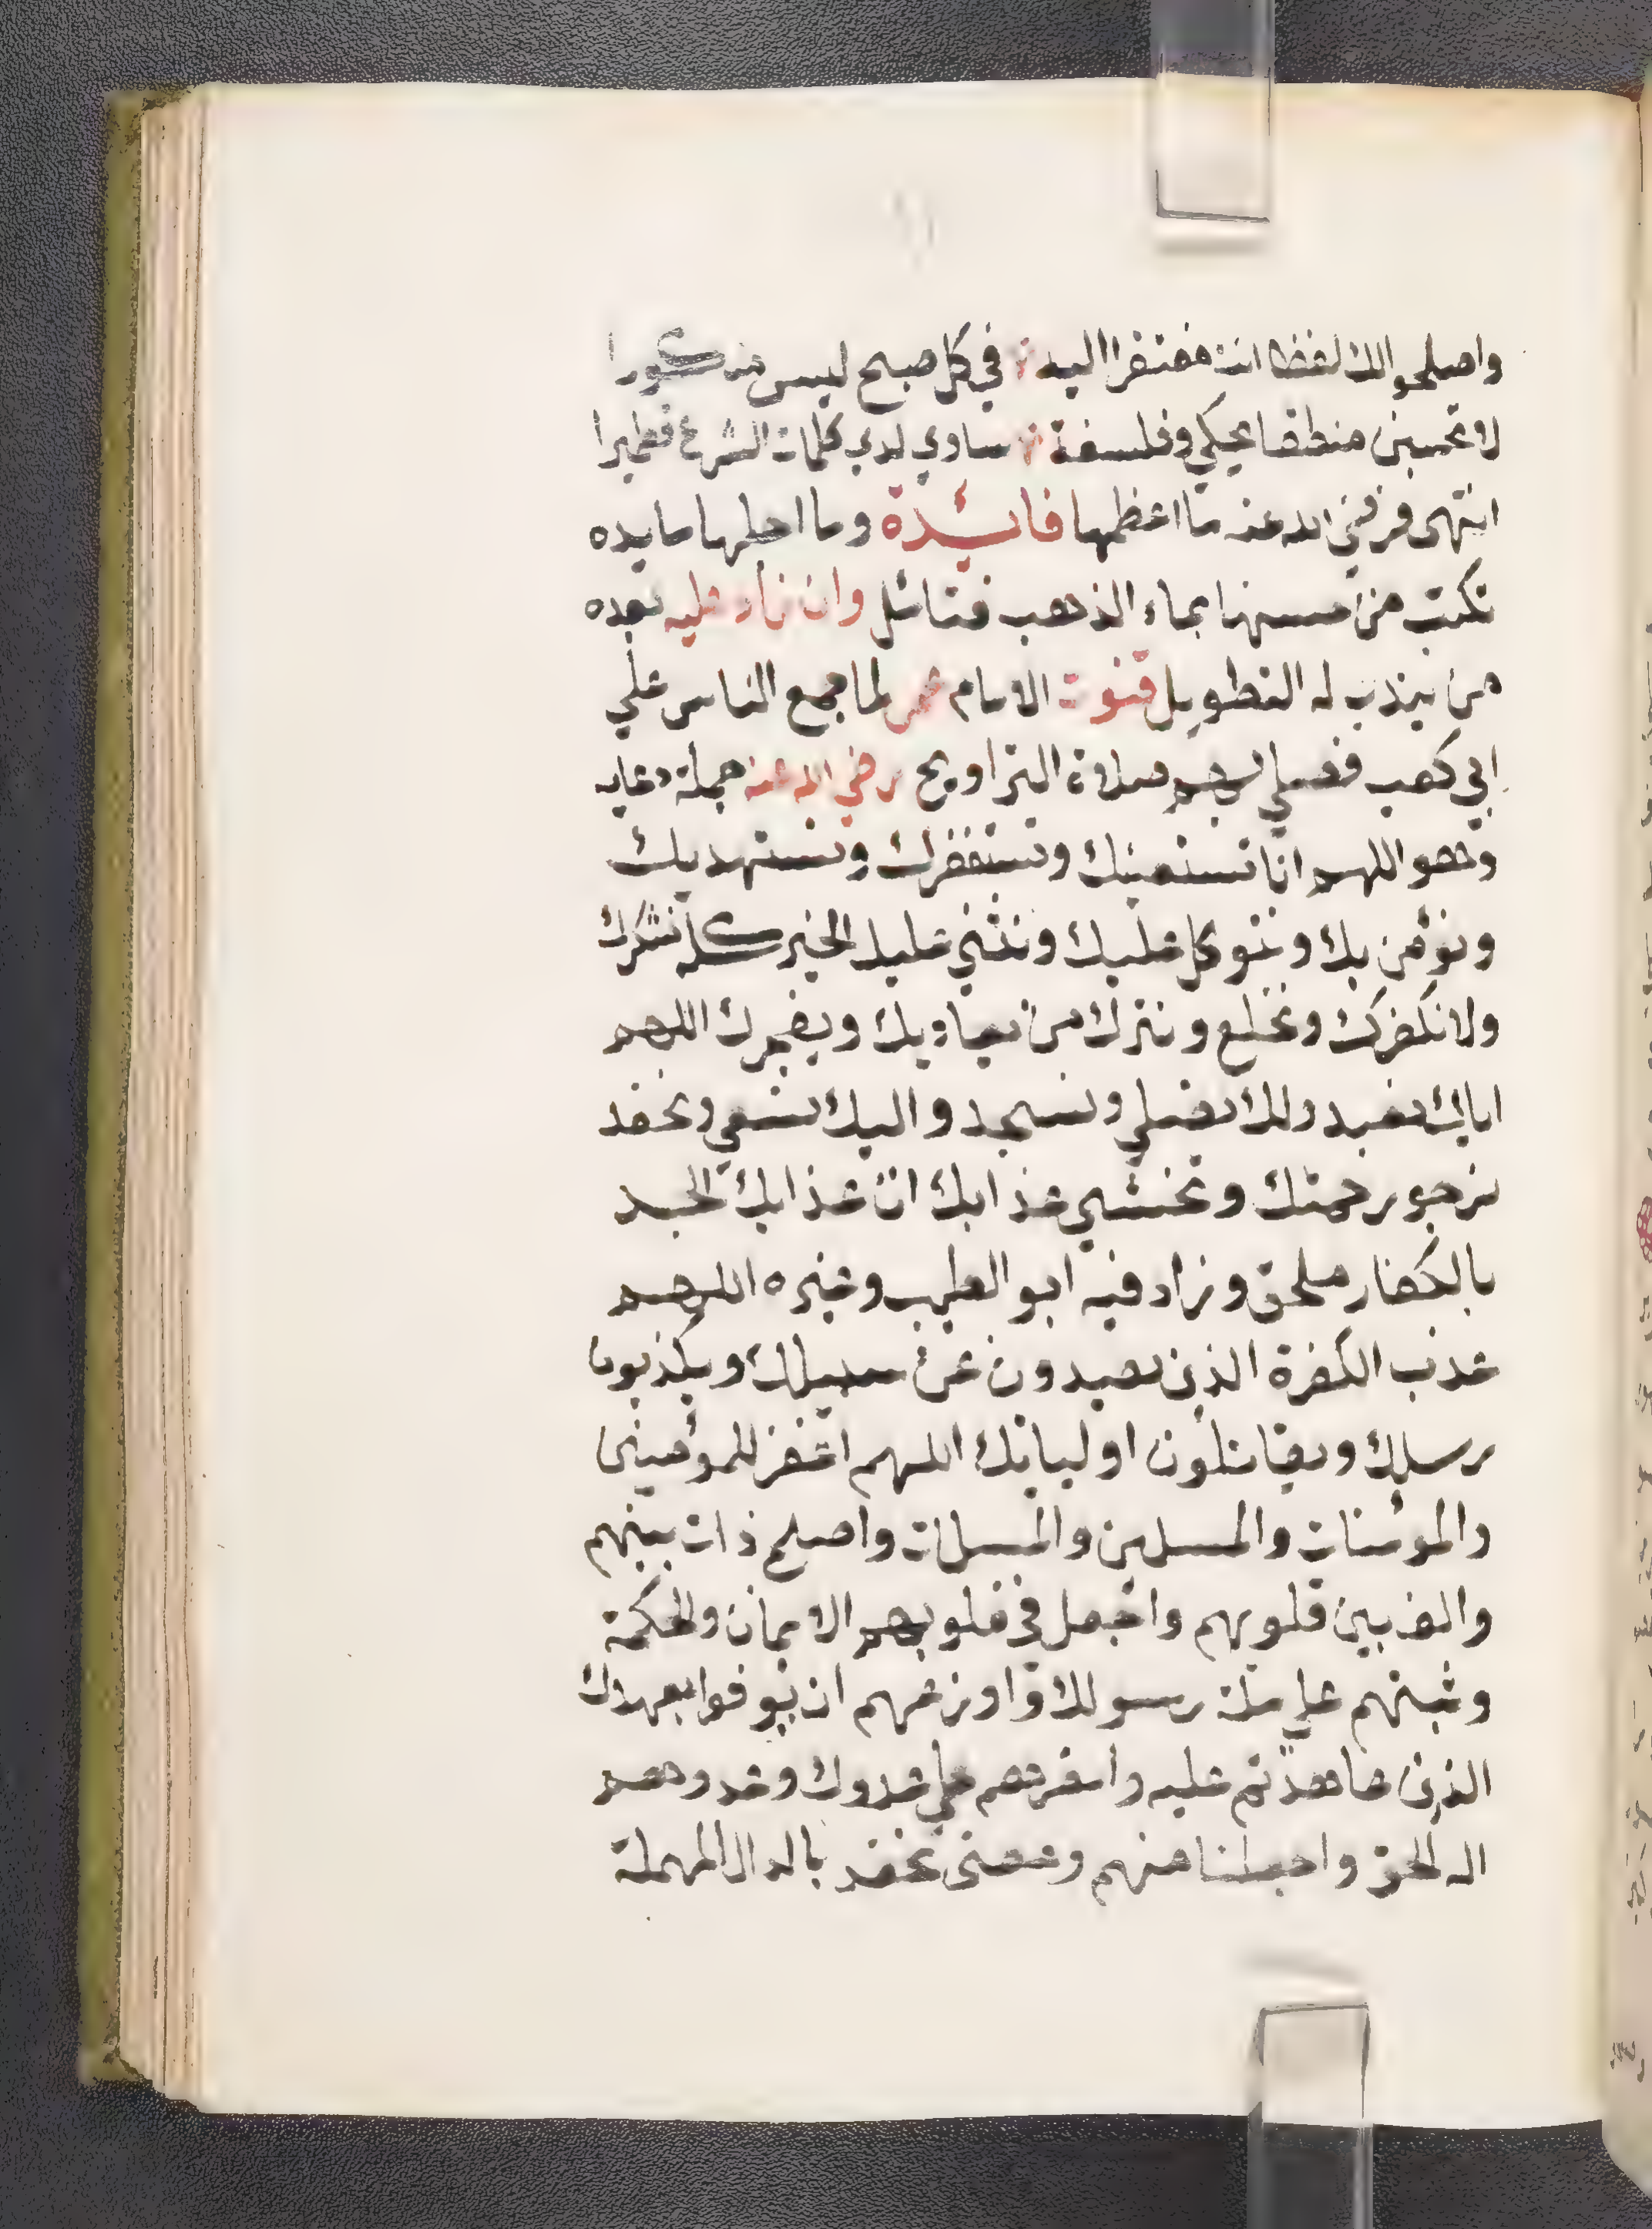 واصلحوا لك لفظا انت مفتقرا اليه في كل صبح ليس مذكورا
لا تحسبن منطقا يحكي وفلسفة ساوي لدي كلمات الشرع قطميرا
انتهى فرضي الله عنه ما اعظمها فائدة وما احلها مايده
تكتب من حسنها بماء الذهب فتائل وان زاد عليه بعده
من يندب له التطويل قنوت الامام عمر لما جمع الناس علي
ابي كعب فصلي بهم صلاة التراويح رضي الله عنه جملة دعايه
وهو اللهم انا نستعينك ونستغفرك ونستهديك
ونؤمن بك ونتوكل عليك ونثني عليك الخير كله نشكرك
ولا نكفرك ونخلع ونترك من يعاديك ويفجرك اللهم
اياك نعبد ولك نصلي ونسجد واليك نسعي ونحفد
نرجو رحمتك ونخشي عذابك ان عذابك الجد
بالكفار ملحق وزاد فيه ابو الطيب وغيره اللهم
عذب الكفرة الذين يصدون عن سبيلك ويكذبون
رسلك ويقاتلون اوليائك اللهم اغفر للمؤمنين
والمومنات والمسلمين والمسلمات واصلح ذات بينهم
والف بين قلوبهم واجعل في قلوبهم الايمان والحكمة
وثبتهم علي ملة رسولك واوزعهم ان يوفوا بعهدك
الذي عاهدتهم عليه وانصرهم علي عدوك وعدوهم
اله الحق واجعلنا منهم ومعنى نحفد بالدال المهملة